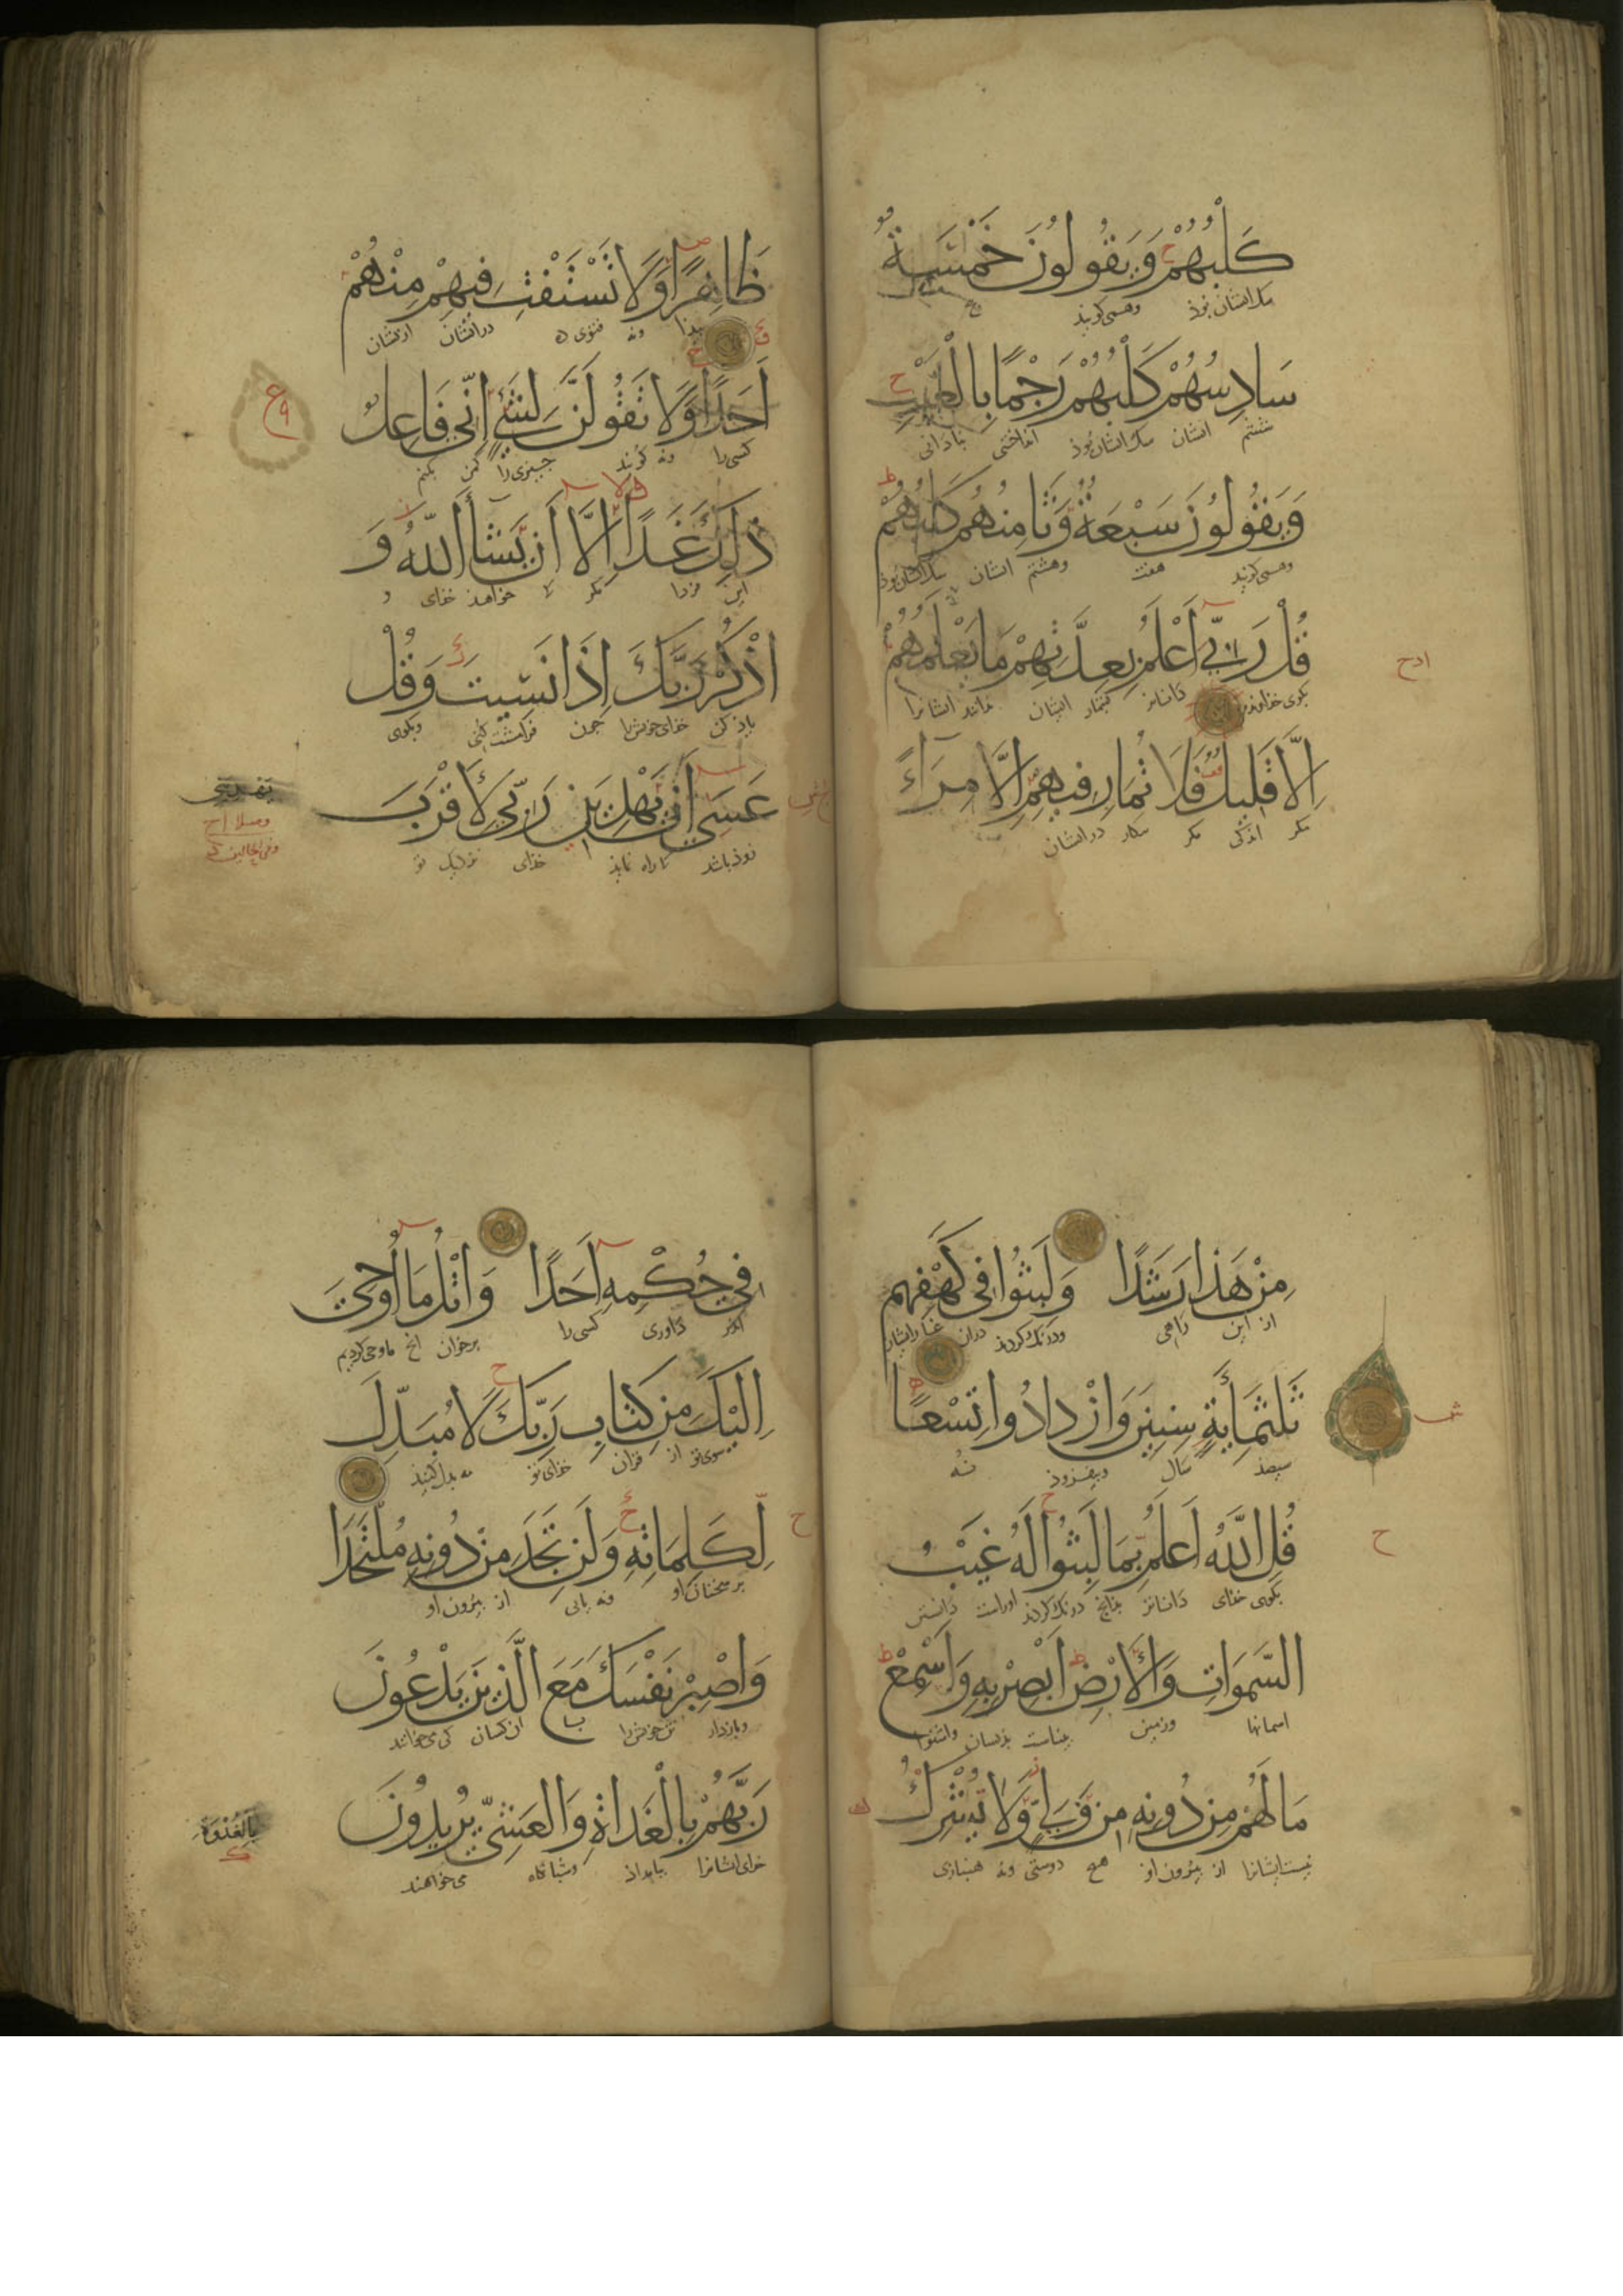 كَلْبُهُمْ وَيَقُولُونَ خَمْسَةٌ
سك ایشان بوذ وهمی کویند
سَادِسُهُمْ كَلْبُهُمْ رَجْمًا بِالْغَيْبِ
ششم ایشان سك ایشان بوذ انداختنی بنادانی
وَيَقُولُونَ سَبْعَةٌ وَثَامِنُهُمْ كَلْبُهُمْ
وهمی کویند هفت وهشتم ایشان سك ایشان بوذ
قُلْ رَبِّي أَعْلَمُ بِعِدَّتِهِمْ مَا يَعْلَمُهُمْ
بکوی خداوند داناتر بشمار ایشان نداند ایشانرا
إِلَّا قَلِيلٌ فَلَا تُمَارِ فِيهِمْ إِلَّا مِرَاءً
مکر اندکی مکر در ایشان
ظَاهِرًا وَلَا تَسْتَفْتِ فِيهِمْ مِنْهُمْ
ونه فتوی در ایشان از یشان
أَحَدًا وَلَا تَقُولَنَّ لِشَيْءٍ إِنِّي فَاعِلٌ
کسی را ونه کویند جیزی را کمن بکنم
ذَلِكَ غَدًا إِلَّا أَنْ يَشَأَ اللَّهُ وَ
این فردا مکر تا خواهذ خذای و
اذْكُرْ رَبَّكَ إِذَا نَسِيتَ وَقُلْ
یاذ کن خذای خویش را جون وبکوی
عَسَى أَنْ يَهْدِيَنِ رَبِّي لِأَقْرَبَ
زوذ باشد تا راه نمایذ خذای نزدیک تر
مِنْ هَذَا رَشَدًا وَلَبِثُوا فِي كَهْفِهِمْ
از این راهی ودرنك کردند دران غار ایشان
ثَلَثَمِائَةٍ سِنِينَ وَازْدَادُوا تِسْعًا
سیصذ سال وبیفزوذ نه
قُلِ اللَّهُ أَعْلَمُ بِمَا لَبِثُوا لَهُ غَيْبُ
بکوی خذای داناتر بدانج درنك کردند اوراست دانستن
السَّمَوَاتِ وَالْأَرْضِ أَبْصِرْ بِهِ وَأَسْمِعْ
اسمانها وزمین
مَا لَهُمْ مِنْ دُونِهِ مِنْ وَلِيٍّ وَلَا يُشْرِكُ
نیست ایشانرا از بیرون او هیج دوستی ونه هنبازی
فِي حُكْمِهِ أَحَدًا وَاتْلُ مَا أُوحِيَ
اندر داوری کسی را برخوان انج ما وحی کردیم
إِلَيْكَ مِنْ كِتَابِ رَبِّكَ لَا مُبَدِّلَ
سوی تو از قران خذای تو نه بدل کنند
لِكَلِمَاتِهِ وَلَنْ تَجِدَ مِنْ دُونِهِ مُلْتَحَدًا
مر سخنان او ونه یابی از بیرون او
وَاصْبِرْ نَفْسَكَ مَعَ الَّذِينَ يَدْعُونَ
وبازدار تن خویش را با ان کسان کی می خوانند
رَبَّهُمْ بِالْغَدَاةِ وَالْعَشِيِّ يُرِيدُونَ
خذای ایشانرا ببامداذ وشبانکاه می خواهند
بِالْغُدْوَةِ